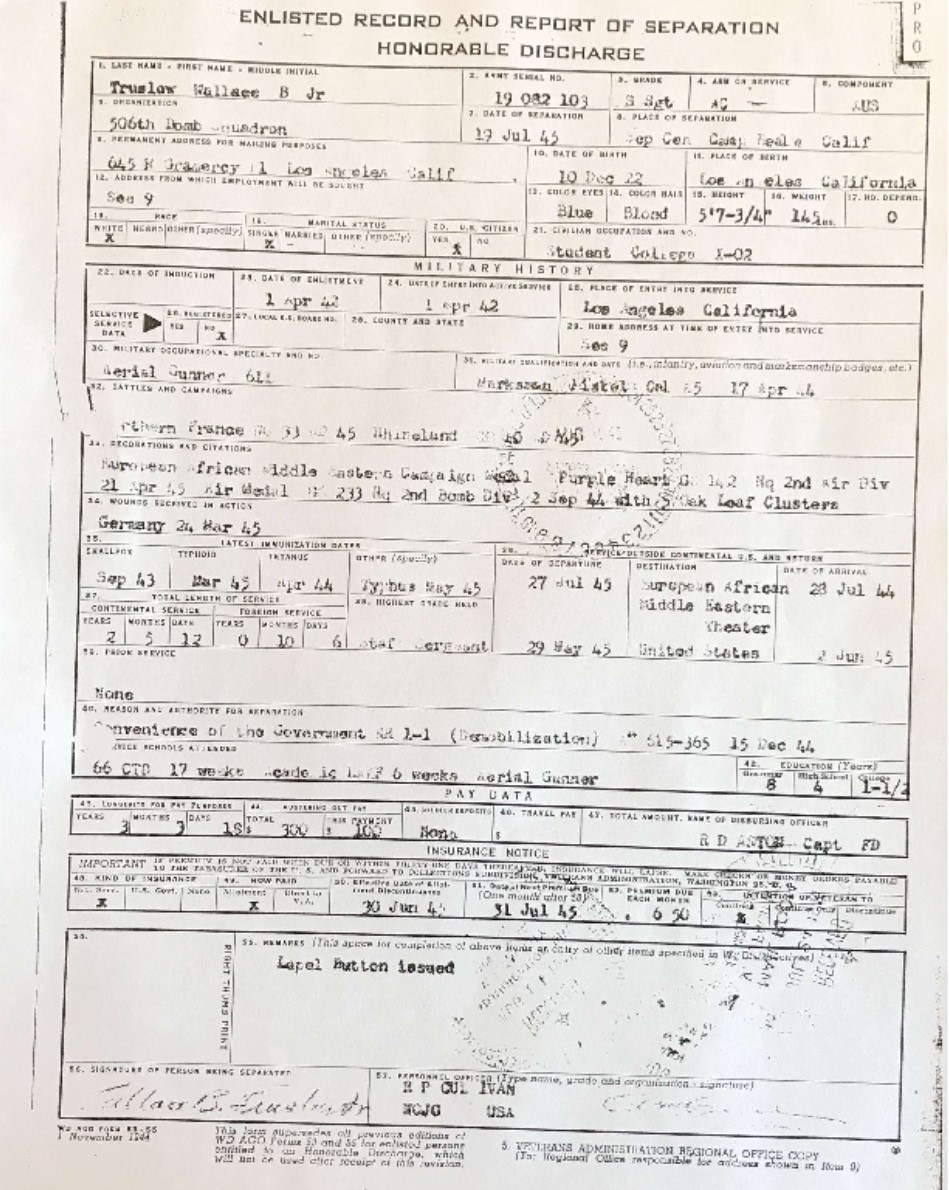 PRO
ENLISTED RECORD AND REPORT OF SEPARATION
HONORABLE DISCHARGE
1. LAST NAME - FIRST NAME - MIDDLE INITIAL
2. ARMY SERIAL NO.
3. GRADE
4. ARM OR SERVICE
5. COMPONENT
Truslow Wallace B Jr
19 082 103
S Sgt
AC —
AUS
6. ORGANIZATION
7. DATE OF SEPARATION
8. PLACE OF SEPARATION
506th Bomb Squadron
19 Jul 45
Sep Cen Camp Beale Calif
9. PERMANENT ADDRESS FOR MAILING PURPOSES
10. DATE OF BIRTH
11. PLACE OF BIRTH
645 N Gramercy Pl Los Angeles Calif
10 Dec 22
Los An eles California
12. ADDRESS FROM WHICH EMPLOYMENT WILL BE SOUGHT
13. COLOR EYES
14. COLOR HAIR
15. HEIGHT
16. WEIGHT
17. NO. DEPEND.
See 9
Blue
Blond
5'7-3/4"
145 lbs.
0
18. RACE
19. MARITAL STATUS
20. U.S. CITIZEN
21. CIVILIAN OCCUPATION AND NO.
WHITE NEGRO OTHER (specify)
SINGLE MARRIED OTHER (specify)
YES NO
X
X
X
Student College X-02
MILITARY HISTORY
22. DATE OF INDUCTION
23. DATE OF ENLISTMENT
24. DATE OF ENTRY INTO ACTIVE SERVICE
25. PLACE OF ENTRY INTO SERVICE
1 Apr 42
1 Apr 42
Los Angeles California
SELECTIVE SERVICE DATA
26. REGISTERED
YES NO
X
27. LOCAL S.S. BOARD NO.
28. COUNTY AND STATE
29. HOME ADDRESS AT TIME OF ENTRY INTO SERVICE
See 9
30. MILITARY OCCUPATIONAL SPECIALTY AND NO.
31. MILITARY QUALIFICATION AND DATE (i.e., infantry, aviation and marksmanship badges, etc.)
Aerial Gunner 611
Marksman Pistol Cal 45 17 Apr 44
32. BATTLES AND CAMPAIGNS
rthern France 33 45 Rhineland 40
33. DECORATIONS AND CITATIONS
European African Middle Eastern Campaign Medal Purple Heart GO 142 Hq 2nd Air Div
21 Apr 45 Air Medal 233 Hq 2nd Bomb Div 2 Sep 44 with 5 Oak Leaf Clusters
34. WOUNDS RECEIVED IN ACTION
Germany 24 Mar 45
35. LATEST IMMUNIZATION DATES
36. SERVICE OUTSIDE CONTINENTAL U.S. AND RETURN
SMALLPOX TYPHOID TETANUS OTHER (specify)
DATE OF DEPARTURE DESTINATION DATE OF ARRIVAL
Sep 43 Mar 45 Apr 44 Typhus May 45
27 Jul 45 European African 28 Jul 44
Middle Eastern
Theater
37. TOTAL LENGTH OF SERVICE
38. HIGHEST GRADE HELD
CONTINENTAL SERVICE FOREIGN SERVICE
YEARS MONTHS DAYS YEARS MONTHS DAYS
2 5 12 0 10 6
Staf Sergeant
29 May 45 United States 2 Jun 45
39. PRIOR SERVICE
None
40. REASON AND AUTHORITY FOR SEPARATION
nvenience of the Government RR 1-1 (Demobilization) 615-365 15 Dec 44
SERVICE SCHOOLS ATTENDED
42. EDUCATION (Years)
Grammar High School College
66 CTD 17 weeks 6 weeks Aerial Gunner
8 4 1-1/2
PAY DATA
43. LONGEVITY FOR PAY PURPOSES
44. MUSTERING OUT PAY
45. SOLDIER DEPOSITS
46. TRAVEL PAY
47. TOTAL AMOUNT, NAME OF DISBURSING OFFICER
YEARS MONTHS DAYS
TOTAL THIS PAYMENT
3 3 18
$ 300 $ 100
None
$
R D ASTON Capt FD
INSURANCE NOTICE
IMPORTANT IF PREMIUM IS NOT PAID WHEN DUE OR WITHIN THIRTY-ONE DAYS THEREAFTER, INSURANCE WILL LAPSE. MAKE CHECKS OR MONEY ORDERS PAYABLE
TO THE TREASURER OF THE U. S. AND FORWARD TO COLLECTIONS SUBDIVISION, VETERANS ADMINISTRATION, WASHINGTON 25, D. C.
48. KIND OF INSURANCE
49. HOW PAID
50. Effective Date of Allotment Discontinuance
51. Date of Next Premium Due (One month after 50)
52. PREMIUM DUE EACH MONTH
53. INTENTION OF VETERAN TO
Nat. Serv. U.S. Govt. None
Allotment Direct to V.A.
Continue Continue Only Discontinue
X
X
30 Jun 45
31 Jul 45
6 50
X
54.
RIGHT THUMB PRINT
55. REMARKS (This space for completion of above items or entry of other items specified in W. D. Directives)
Lapel Button issued
56. SIGNATURE OF PERSON BEING SEPARATED
57. PERSONNEL OFFICER (Type name, grade and organization - signature)
Wallace B. Truslow Jr
WOJG USA
WD AGO FORM 53-55
1 November 1944
This form supersedes all previous editions of
WD AGO Forms 53 and 55 for enlisted persons
entitled to an Honorable Discharge, which
will not be used after receipt of this revision.
5. VETERANS ADMINISTRATION REGIONAL OFFICE COPY
(To: Regional Office responsible for address shown in Item 9)